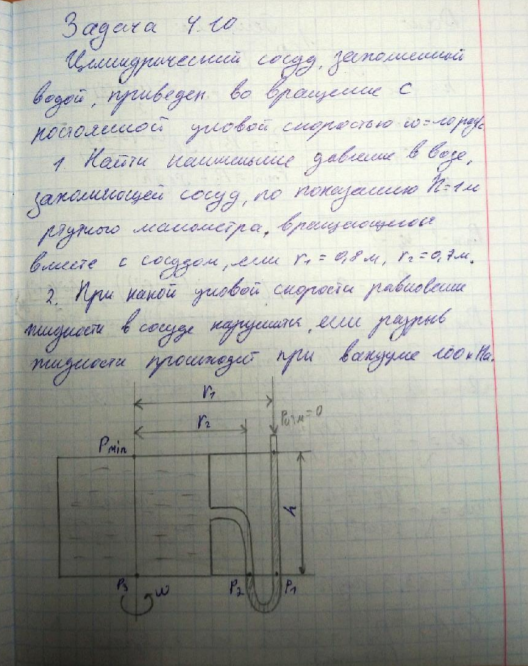 Задача 4.10
Цилиндрический сосуд, заполненной
водой, приведен во вращение с
постоянной угловой скоростью ω=10рад/с
1. Найти наименьшие давление в воде,
заполняющей сосуд, по показанию h=1м
ртутного манометра, вращающегося
вместе с сосудом, если r₁=0,8м, r₂=0,7м.
2. При какой угловой скорости равновесие
жидкости в сосуде нарушится, если разрыв
жидкости происходит при вакууме 100кПа.
r₁
r₂
Pmin
h
P₃
ω
P₂
P₁